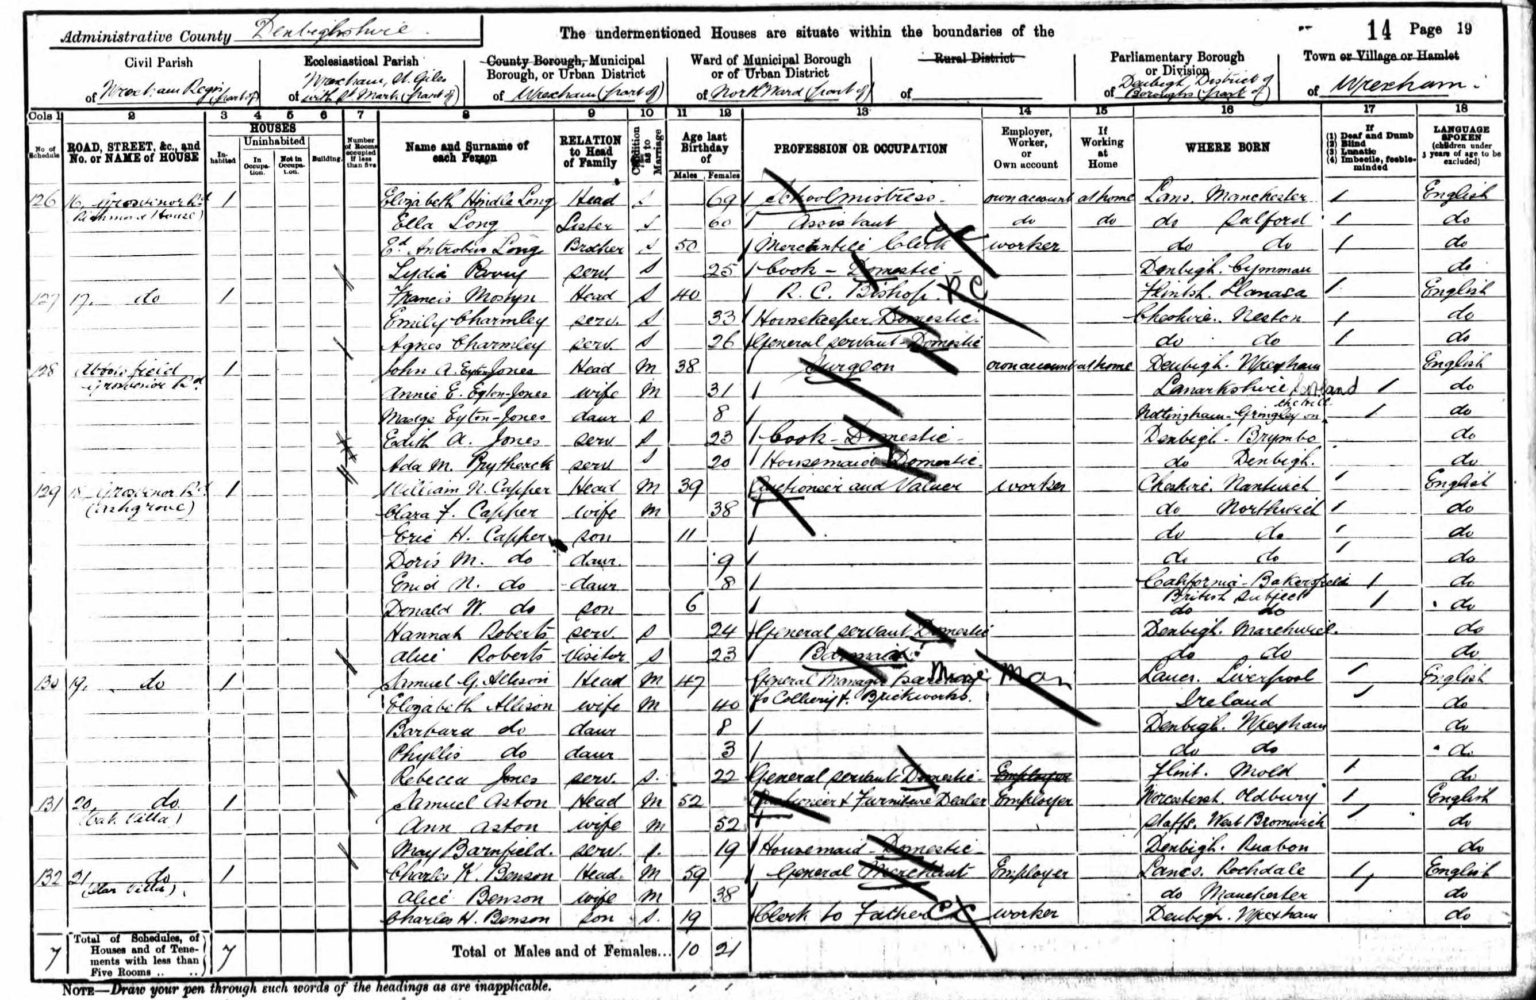 Administrative County Denbighshire.
The undermentioned Houses are situate within the boundaries of the
14 Page 19
Civil Parish
of Wrexham Regis (part of)
Ecclesiastical Parish
of Wrexham, St. Giles with St Marks (part of)
County Borough, Municipal Borough, or Urban District
of Wrexham (part of)
Ward of Municipal Borough or of Urban District
of North Ward (part of)
Rural District
of
Parliamentary Borough or Division
of Denbigh District of Boroughs (part of)
Town or Village or Hamlet
of Wrexham.
Cols 1 2 3 4 5 6 7 8 9 10 11 12 13 14 15 16 17 18
No. of Schedule
ROAD, STREET, &c., and No. or NAME of HOUSE
HOUSES
Inhabited
Uninhabited
In Occupation.
Not in Occupation.
Building.
Number of Rooms occupied if less than five
Name and Surname of each Person
RELATION to Head of Family
Condition as to Marriage
Age last Birthday of
Males Females
PROFESSION OR OCCUPATION
Employer, Worker, or Own account
If Working at Home
WHERE BORN
If
(1) Deaf and Dumb
(2) Blind
(3) Lunatic
(4) Imbecile, feeble-minded
LANGUAGE SPOKEN (children under 3 years of age to be excluded)
126 16, Grosvenor Rd (Richmond House) 1 Elizabeth Long Head S 69 Schoolmistress own account at home Lans. Manchester English
Ella Long Sister S 60 Assistant do do do Salford do
Ed. Antrobus Long Brother S 50 Mercantile Clerk worker do do do
Lydia serv S 25 Cook - Domestic - Denbigh. do
127 17. do 1 Francis Mostyn Head S 40 R. C. Bishop. RC Flintsh. Llanasa English
Emily Charmley serv. S 33 Housekeeper Domestic. Cheshire. Neston do
Agnes Charmley serv. S 26 General servant Domestic do do do
128 Grosvenor Rd 1 John A. Eyton-Jones Head M 38 Surgeon own account at home Denbigh. Wrexham English
Annie E. Eyton-Jones wife M 31 Lanarkshire Scotland do
Madge Eyton-Jones daur S 8 Nottingham - Gringley on the Hill do
Edith A. Jones serv S 23 Cook - Domestic - Denbigh - Brymbo do
Ada M. Prytherch serv S 20 Housemaid Domestic. do Denbigh. do
129 18 Grosvenor Rd (Ashgrove) 1 William N. Capper Head M 39 Auctioneer and Valuer worker Cheshire. Nantwich English
Clara F. Capper wife M 38 do Northwich do
Eric H. Capper son 11 do do do
Doris M. do daur. 9 do do do
Enid N. do daur 8 California - Bakersfield do
British subject
Donald W. do son 6 do do do
Hannah Roberts serv. S 24 General servant Domestic Denbigh. Marchwiel. do
Alice Roberts Visitor S 23 Barmaid do do do
130 19. do 1 Samuel G. Allison Head M 47 General Manager Mine Man Lancs. Liverpool English
Elizabeth Allison wife M 40 to Colliery & Brickworks. Ireland do
Barbara do daur 8 Denbigh. Wrexham do
Phyllis do daur 3 do do do
Rebecca Jones serv. S. 22 General servant Domestic - Employer Flint. Mold do
131 20 do. (Oak Villa) 1 Samuel Aston Head M 52 Auctioneer & Furniture Dealer Employer Worcestersh. Oldbury English
Ann Aston wife M 52 Staffs. West Bromwich do
May Barnfield. serv. S. 19 Housemaid - Domestic - Denbigh. Ruabon do
132 21 do 1 Charles K. Benson Head. M 59 General Merchant Employer Lancs. Rochdale English
Alice Benson wife M 38 do Manchester do
Charles H. Benson son S. 19 Clerk to Father worker Denbigh. Wrexham do
7 Total of Schedules, of Houses and of Tenements with less than Five Rooms .. .. 7
Total of Males and of Females... 10 21
NOTE—Draw your pen through such words of the headings as are inapplicable.